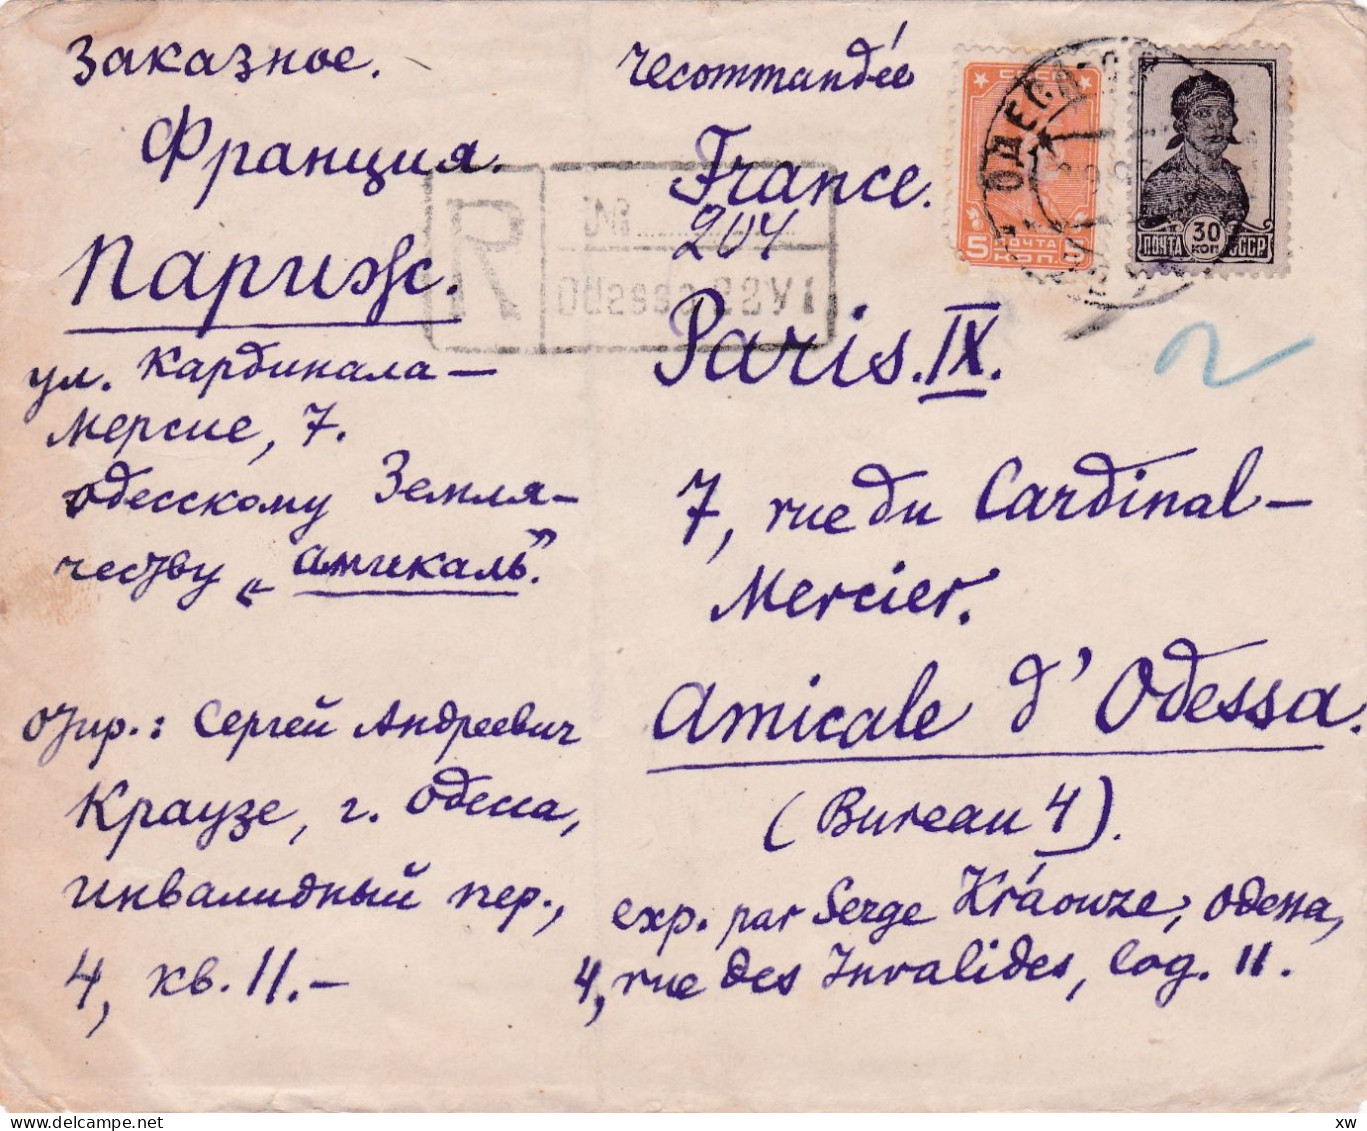 Заказное.
Франция.
Париж.
ул. Кардинала-
Мерсие, 7.
Одесскому Земля-
честву „Амикаль".
Отпр.: Сергей Андреевич
Краузе, г. Одесса,
Инвалидный пер.,
4, кв. 11.-
recommandée
France.
204
Paris. IX.
7, rue du Cardinal-
Mercier.
Amicale d'Odessa.
(Bureau 4).
exp. par Serge Kráouze, Odessa,
4, rue des Invalides, log. 11.
R
№
Odessa 22VI
СССР
5 ПОЧТА
КОП.
ОДЕССА
ПОЧТА 30 КОП. СССР
xw